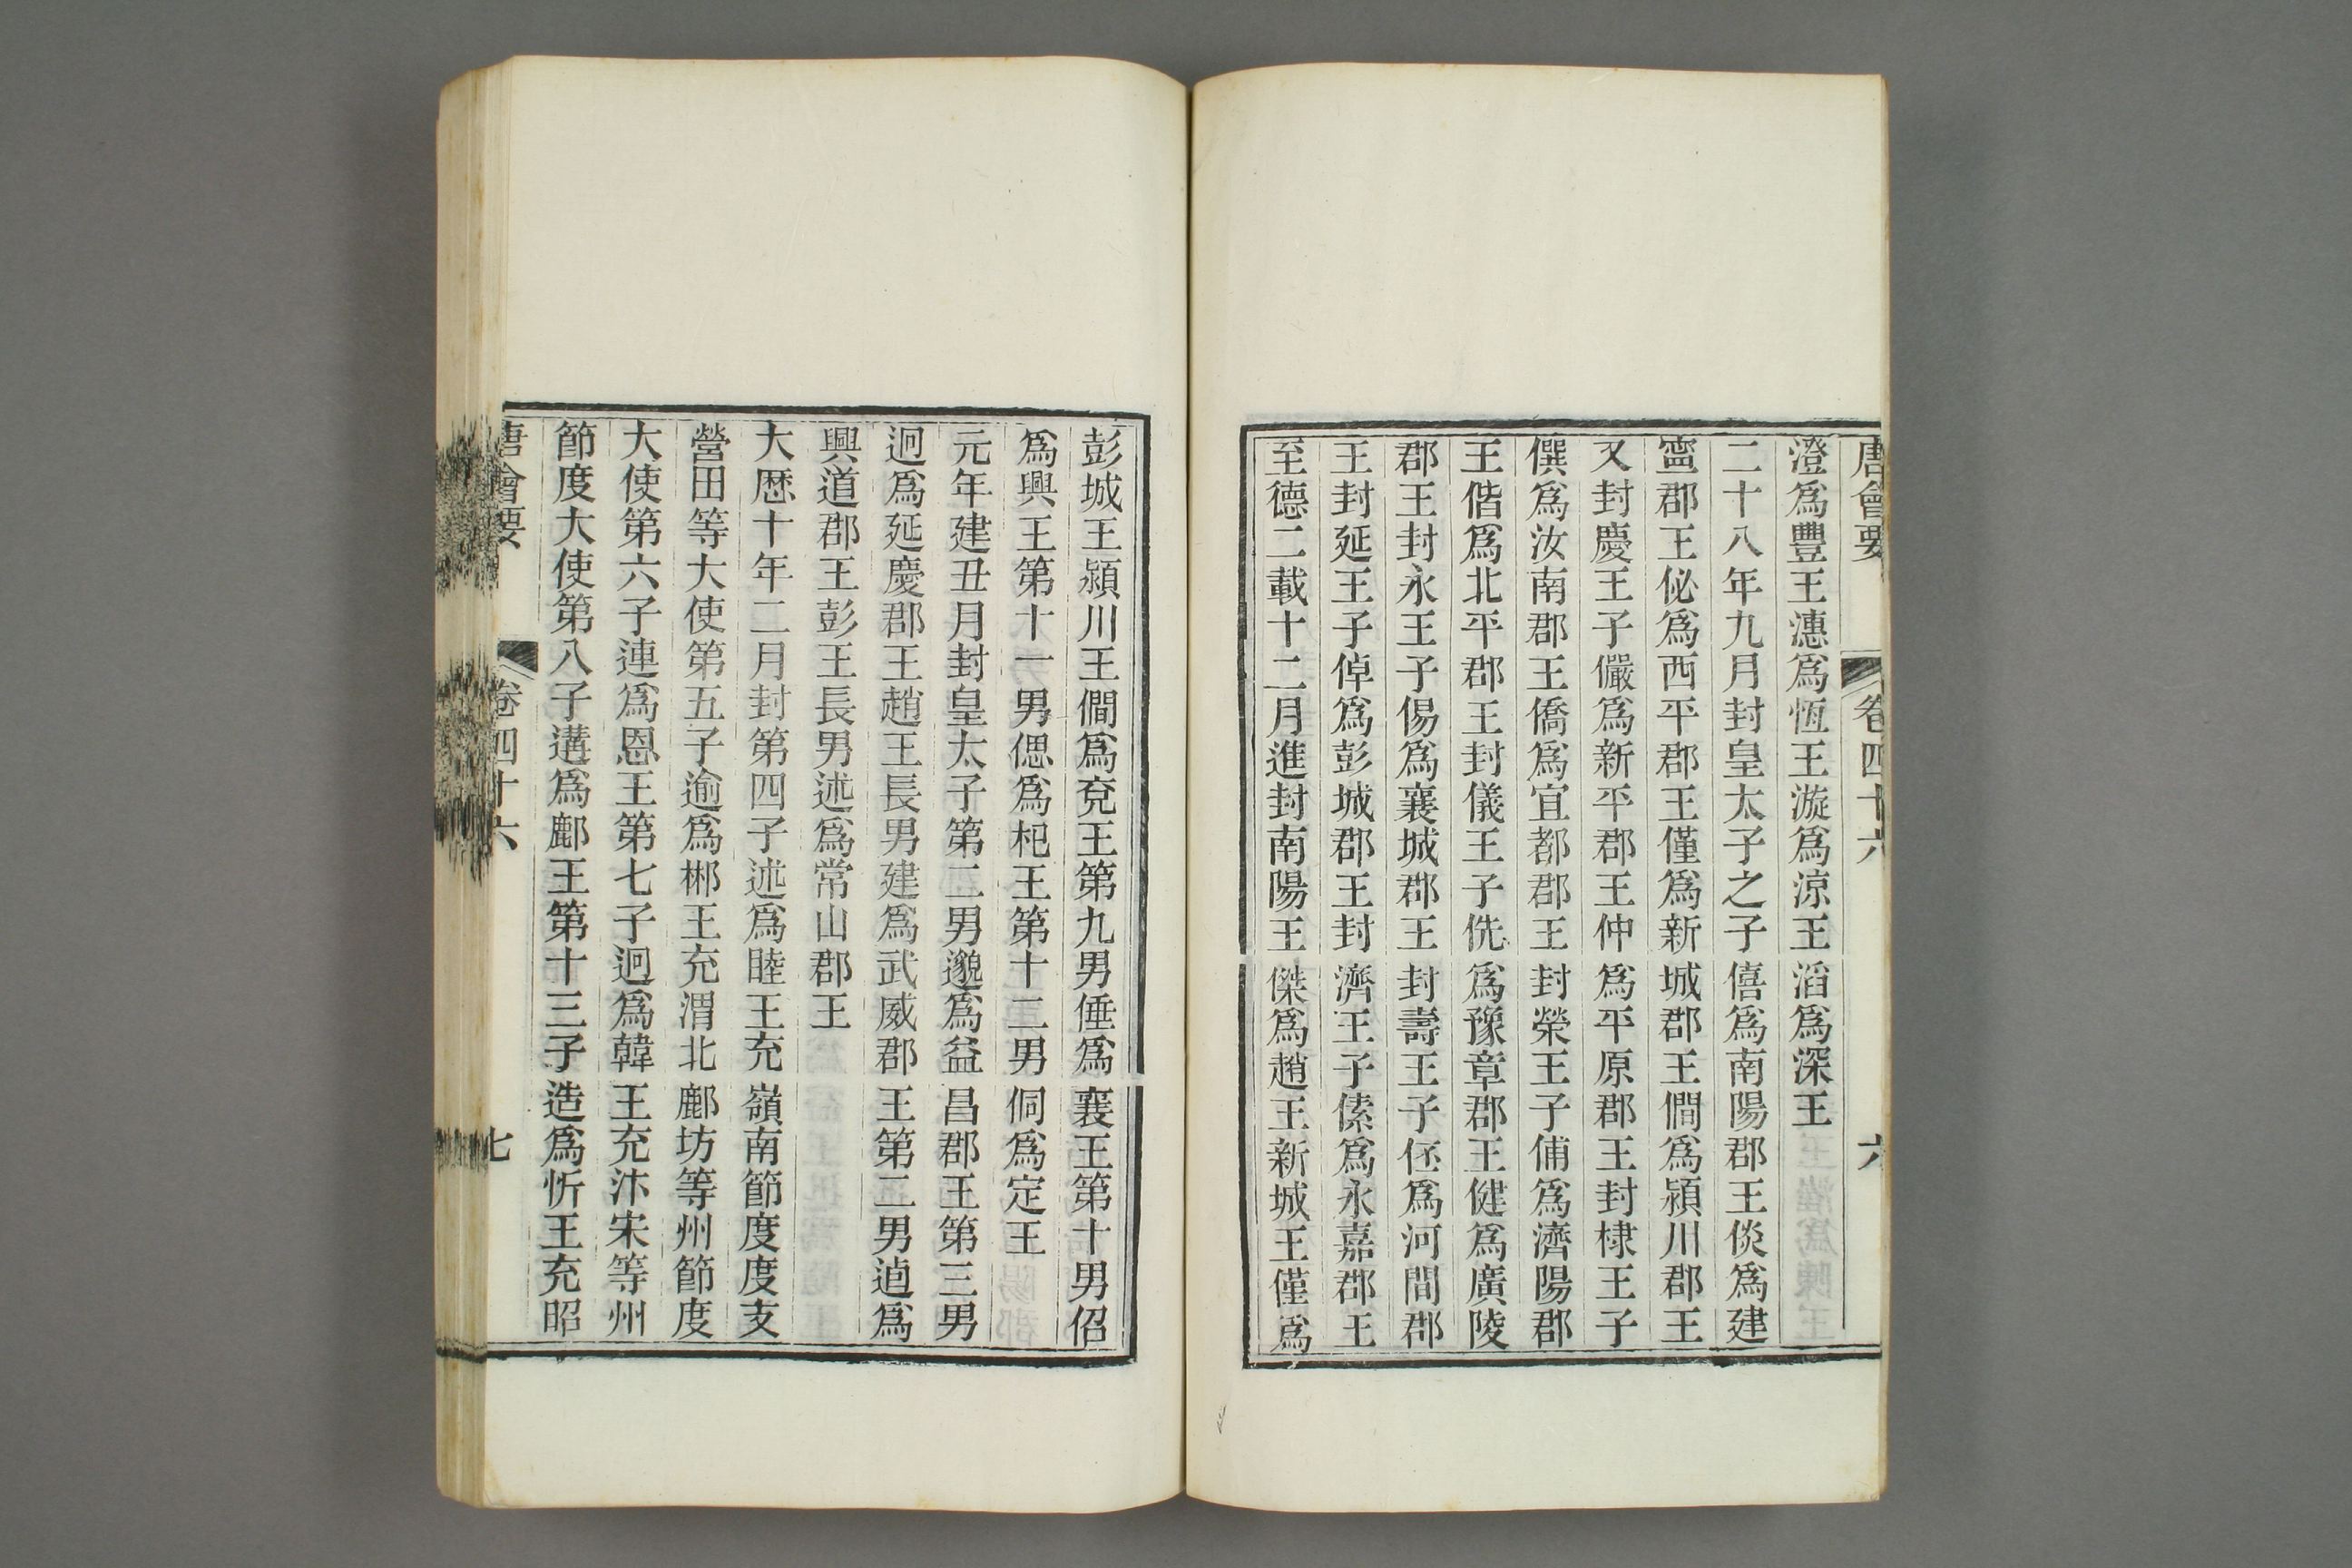 唐會要 卷四十六 六
澄爲豐王漶爲恆王漩爲涼王滔爲深王
二十八年九月封皇太子之子僖爲南陽郡王倓爲建
寧郡王佖爲西平郡王僅爲新城郡王僩爲潁川郡王
又封慶王子儼爲新平郡王仲爲平原郡王封棣王子
僎爲汝南郡王僑爲宜都郡王封榮王子俌爲濟陽郡
王偕爲北平郡王封儀王子侁爲豫章郡王健爲廣陵
郡王封永王子偒爲襄城郡王封壽王子伾爲河間郡
王封延王子倬爲彭城郡王封濟王子傃爲永嘉郡王
至德二載十二月進封南陽王傑爲趙王新城王僅爲
彭城王潁川王僩爲兗王第九男倕爲襄王第十男佋
爲興王第十一男偲爲杞王第十二男侗爲定王
元年建丑月封皇太子第二男邈爲益昌郡王第三男
迥爲延慶郡王趙王長男建爲武威郡王第二男逌爲
興道郡王彭王長男述爲常山郡王
大歷十年二月封第四子述爲睦王充嶺南節度度支
營田等大使第五子逾爲郴王充渭北鄜坊等州節度
大使第六子連爲恩王第七子迥爲韓王充汴宋等州
節度大使第八子遘爲鄜王第十三子造爲忻王充昭
唐會要 卷四十六 七